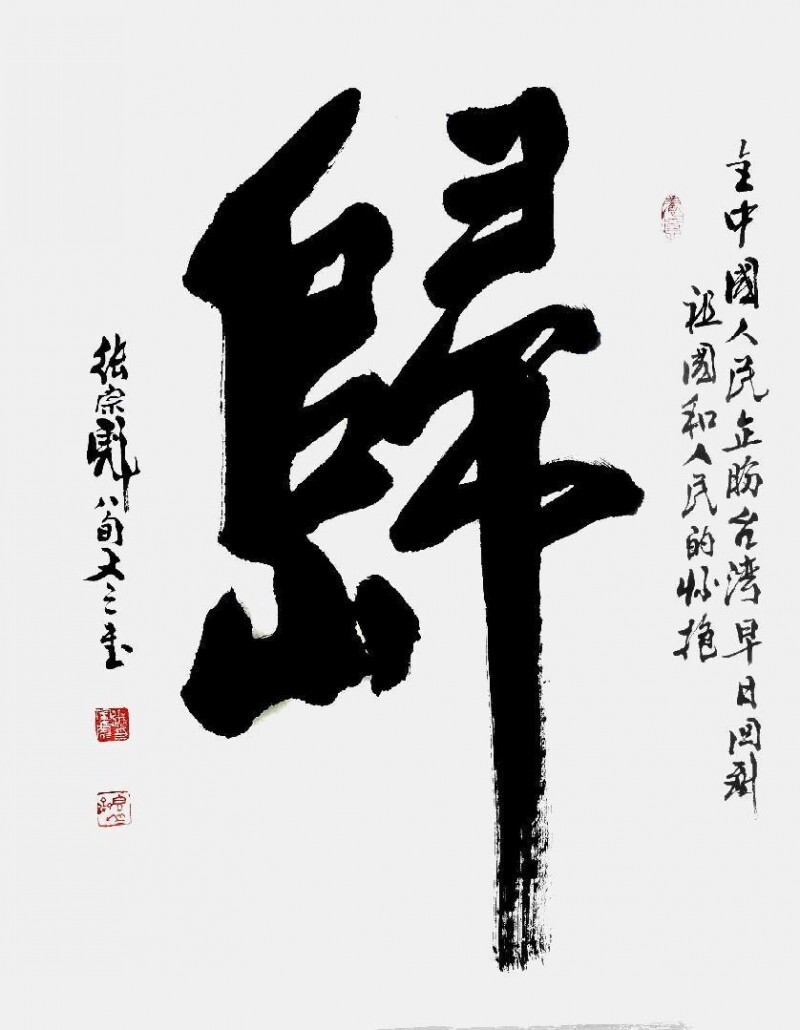 全中國人民企盼台湾早日回到
祖國和人民的怀抱
歸
張宗彪八旬又三书